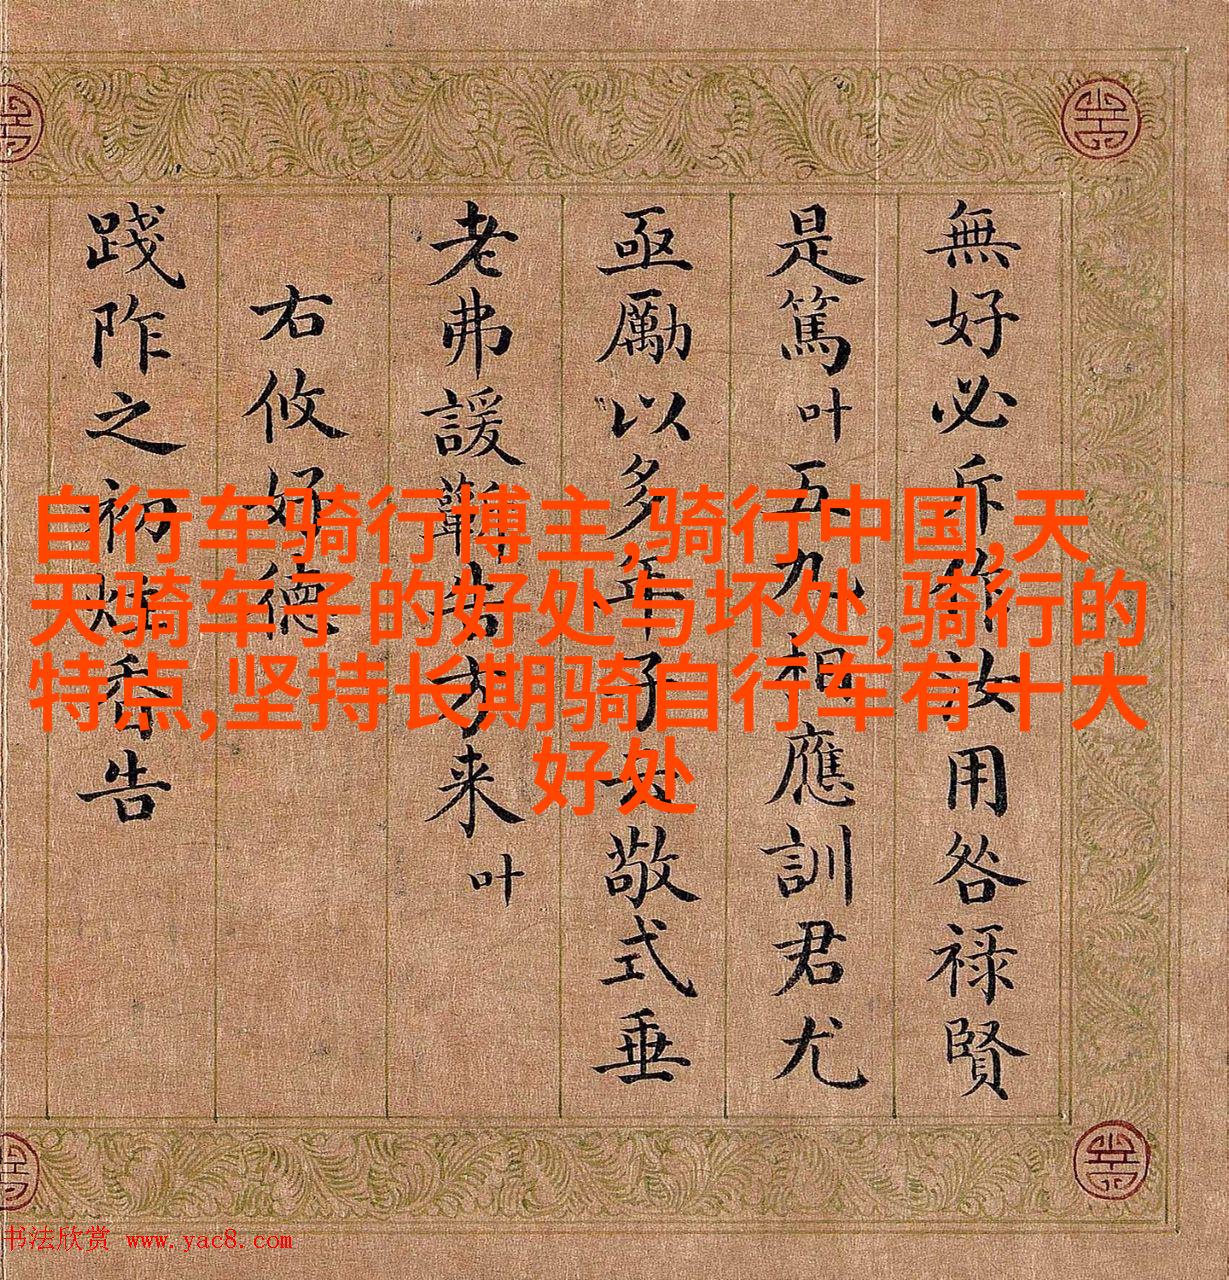 無好必斥作汝用咎祿賢
是篤叶五九相應訓君尤
亟勵以多年子敬式垂
老弗諼方来叶
右攸好德
踐阼之初炷香告
自行车骑行博主,骑行中国,天
天骑车子的好处与坏处,骑行的
特点,坚持长期骑自行车有十大
好处
书法欣赏 www.yac8.com